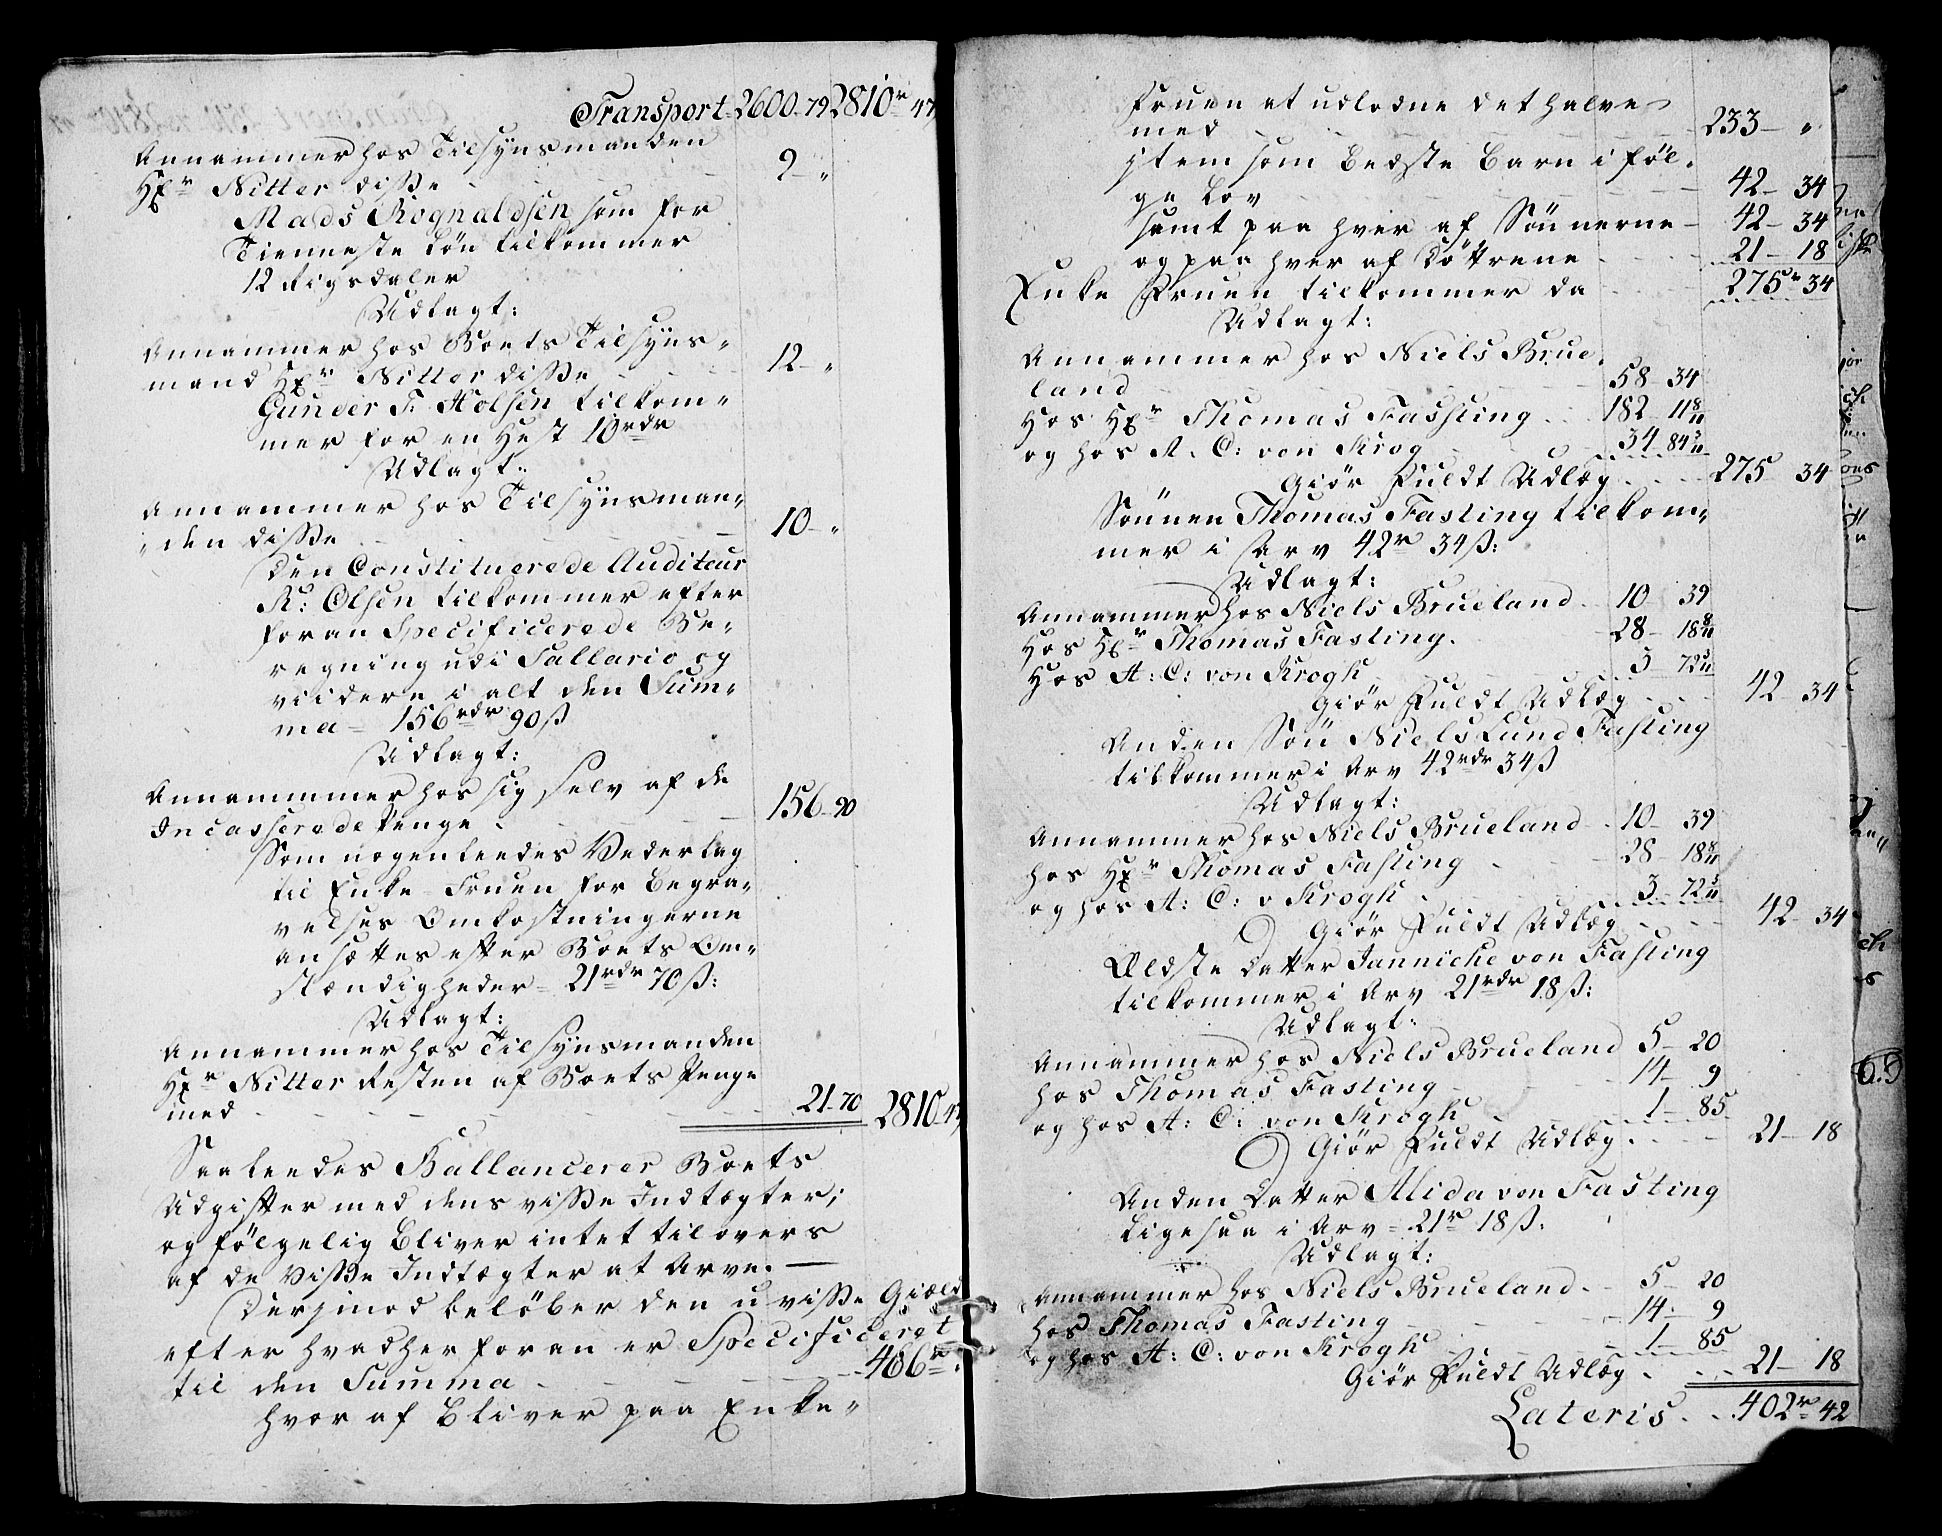 Transport 2600-79 2810r 47
Annammer hos Tilsynsmanden
Hr Nitter disse 9 - "
Mads Rognaldsen som for
Tienneste Løn tilkommer
12 Rigsdaler
Udlagt:
Annammer hos Boets Tilsyns-
mand Hr Nitter disse 12 - "
Gunder T. Holsen tilkom-
mer for en Hest 10rdr
Udlagt:
Annammer hos Tilsynsman-
den disse 10 - "
Den Constituerede Auditeur
R: Olsen tilkommer efter
foran Specificerede Be-
regning udi Sallario og
viidere i alt den Sum-
ma - 156rdr 90ß
Udlagt:
Annammer hos sig selv af de
Incasserede Penge 156-90
Som nogenleedes Vederlag
til Enke-Fruen for Begra-
velses Omkostningerne
ansættes efter Boets Om-
stændigheder - 21rdr 70ß:
Udlagt:
Annammer hos Tilsynsmanden
Hr Nitter Resten af Boets Penge
med 21-70 2810-47
Saaleedes Ballancerer Boets
Udgifter med dens visse Indtægter;
og følgelig bliver intet tilovers
af de Visse Indtægter at Arve.
Derimod beløber den uvisse Giæld
efter hvad her foran er Specificeret
til den Summa 466r.
hvor af bliver paa Enke-
Fruen at udlodne det halve
med 233 - "
item som beste Barn i føl-
ge Lov 42 - 34
samt paa hver af Sønnerne 42 - 34
og paa hver af Døttrene 21 - 18
Enke Fruen tilkommer da 275r 34
Udlagt:
Annammer hos Niels Brue-
land 58 - 34
Hos Hr Thomas Fasting 182 - 11 8/11
og hos A. C: von Krog 34 84 3/11
Giør Fuldt Udlæg 275 34
Sønnen Thomas Fasting tilkom-
mer i Arv 42r 34ß:
Udlagt:
Annammer hos Niels Brueland 10 39
Hos Hr Thomas Fasting 28 - 18 8/11
Hos A: C: von Krogh 3 - 72 3/11
Giør Fuldt Udlæg 42 34
Anden Søn Niels Lund Fasting
tilkommer i Arv 42rdr 34ß
Udlagt:
Annammer hos Niels Brueland 10 - 39
hos Hr Thomas Fasting 28 - 18 8/11
og hos A: C: v Krogh 3 - 72 3/11
Giør Fuldt Udlæg 42 - 34
Ældste Datter Jannicke von Fasting
tilkommer i Arv 21rdr 18ß:
Udlagt:
Annammer hos Niels Brueland 5 - 20
hos Thomas Fasting 14 - 9
og hos A: C: von Krogh 1 - 85
Giør Fuldt Udlæg 21 - 18
Anden Datter Alida von Fasting
Ligesaa i Arv - 21r 18ß:
Udlagt:
Annammer hos Niels Brueland 5 - 20
hos Thomas Fasting 14 - 9
og hos A: C: von Krogh 1 - 85
Giør Fuldt Udlæg 21 - 18
Lateris 402r 42